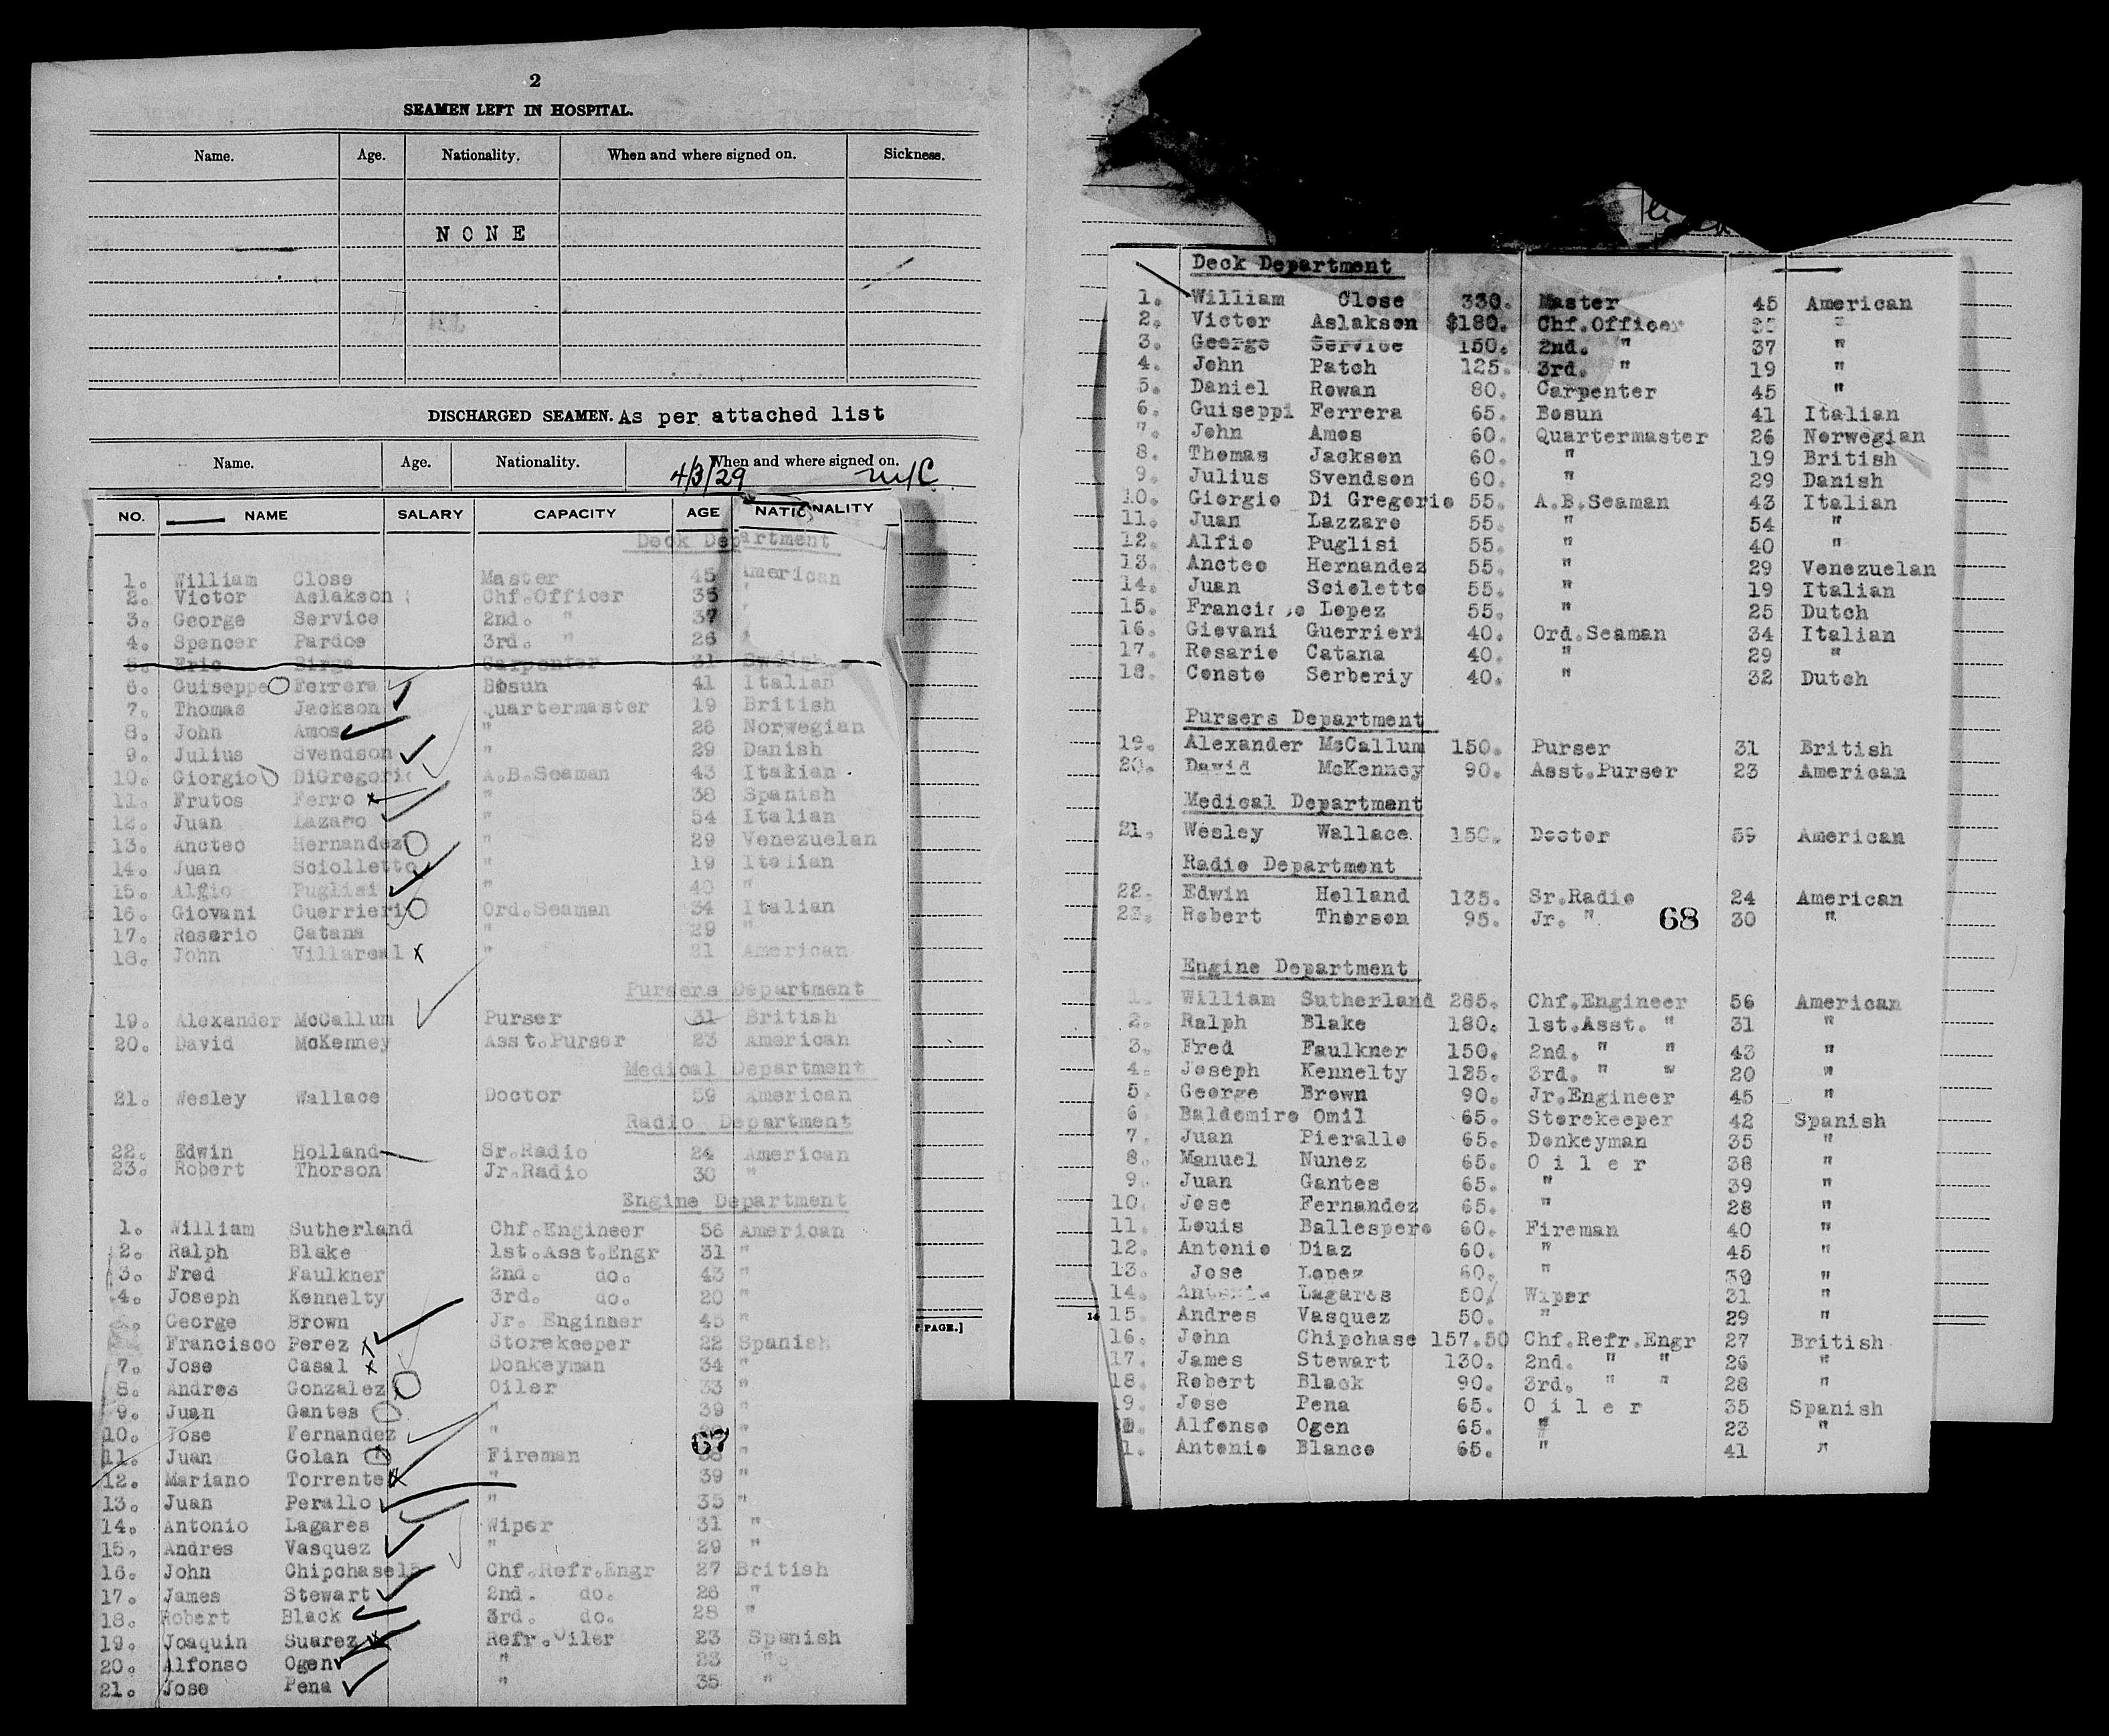 2
SEAMEN LEFT IN HOSPITAL.
Name. Age. Nationality. When and where signed on. Sickness.
NONE
DISCHARGED SEAMEN. As per attached list
Name. Age. Nationality. When and where signed on.
4/3/29 NYC
NO. NAME SALARY CAPACITY AGE NATIONALITY
Deck Department
1. William Close Master 45 American
2. Victor Aslakson Chf.Officer 35 "
3. George Service 2nd. " 37 "
4. Spencer Pardoe 3rd. " 26 "
5. Eric Birge Carpenter 31 Swedish
6. Guiseppe Ferrera Bosun 41 Italian
7. Thomas Jackson Quartermaster 19 British
8. John Amos " 26 Norwegian
9. Julius Svendson " 29 Danish
10. Giorgio DiGregorio A.B.Seaman 43 Italian
11. Frutos Ferro x " 38 Spanish
12. Juan Lazaro " 54 Italian
13. Ancteo Hernandez " 29 Venezuelan
14. Juan Sciolletto " 19 Italian
15. Alfio Puglisi " 40 "
16. Giovani Guerrieri Ord.Seaman 34 Italian
17. Rosario Catana " 29 "
18. John Villareal x " 21 American
Pursers Department
19. Alexander McCallum Purser 31 British
20. David McKenney Asst.Purser 23 American
Medical Department
21. Wesley Wallace Doctor 59 American
Radio Department
22. Edwin Holland Sr.Radio 24 American
23. Robert Thorson Jr.Radio 30 "
Engine Department
1. William Sutherland Chf.Engineer 56 American
2. Ralph Blake 1st.Asst.Engr 31 "
3. Fred Faulkner 2nd. do. 43 "
4. Joseph Kennelty 3rd. do. 20 "
George Brown Jr. Enginner 45 "
Francisco Perez x Storekeeper 22 Spanish
7. Jose Casal x Donkeyman 34 "
8. Andres Gonzalez Oiler 33 "
9. Juan Gantes " 39 "
10. Jose Fernandez " "
11. Juan Golan Fireman "
67
12. Mariano Torrente x " 39 "
13. Juan Perallo " 35 "
14. Antonio Lagares Wiper 31 "
15. Andres Vasquez " 29 "
16. John Chipchase Chf.Refr.Engr 27 British
17. James Stewart 2nd. do. 26 "
18. Robert Black 3rd. do. 28 "
19. Joaquin Suarez x Refr.Oiler 23 Spanish
20. Alfonso Ogen " 23 "
21. Jose Pena " 35 "
PAGE.]
Deck Department
1. William Close 330. Master 45 American
2. Victor Aslakson $180. Chf.Officer 35 "
3. George Service 150. 2nd. " 37 "
4. John Patch 125. 3rd. " 19 "
5. Daniel Rowan 80. Carpenter 45 "
6. Guiseppi Ferrera 65. Bosun 41 Italian
7. John Amos 60. Quartermaster 26 Norwegian
8. Thomas Jackson 60. " 19 British
9. Julius Svendson 60. " 29 Danish
10. Giorgio Di Gregorio 55. A.B.Seaman 43 Italian
11. Juan Lazzaro 55. " 54 "
12. Alfio Puglisi 55. " 40 "
13. Ancteo Hernandez 55. " 29 Venezuelan
14. Juan Scioletto 55. " 19 Italian
15. Francisco Lopez 55. " 25 Dutch
16. Giovani Guerrieri 40. Ord.Seaman 34 Italian
17. Rosario Catana 40. " 29 "
18. Consto Serberiy 40. " 32 Dutch
Pursers Department
19. Alexander McCallum 150. Purser 31 British
20. David McKenney 90. Asst.Purser 23 American
Medical Department
21. Wesley Wallace 150. Doctor 59 American
Radio Department
22. Edwin Holland 135. Sr.Radio 24 American
23. Robert Thorson 95. Jr. " 30 "
68
Engine Department
1. William Sutherland 285. Chf.Engineer 56 American
2. Ralph Blake 180. 1st.Asst. " 31 "
3. Fred Faulkner 150. 2nd. " " 43 "
4. Joseph Kennelty 125. 3rd. " " 20 "
5. George Brown 90. Jr.Engineer 45 "
6. Baldomiro Omil 65. Storekeeper 42 Spanish
7. Juan Pierallo 65. Donkeyman 35 "
8. Manuel Nunez 65. Oiler 38 "
9. Juan Gantes 65. " 39 "
10. Jose Fernandez 65. " 28 "
11. Louis Ballespero 60. Fireman 40 "
12. Antonio Diaz 60. " 45 "
13. Jose Lopez 60. " "
14. Antonio Lagares 50. Wiper 31 "
15. Andres Vasquez 50. " 29 "
16. John Chipchase 157.50 Chf.Refr.Engr 27 British
17. James Stewart 130. 2nd. " " 26 "
18. Robert Black 90. 3rd. " " 28 "
19. Jose Pena 65. Oiler 35 Spanish
Alfonso Ogen 65. " 23 "
1. Antonio Blanco 65. " 41 "